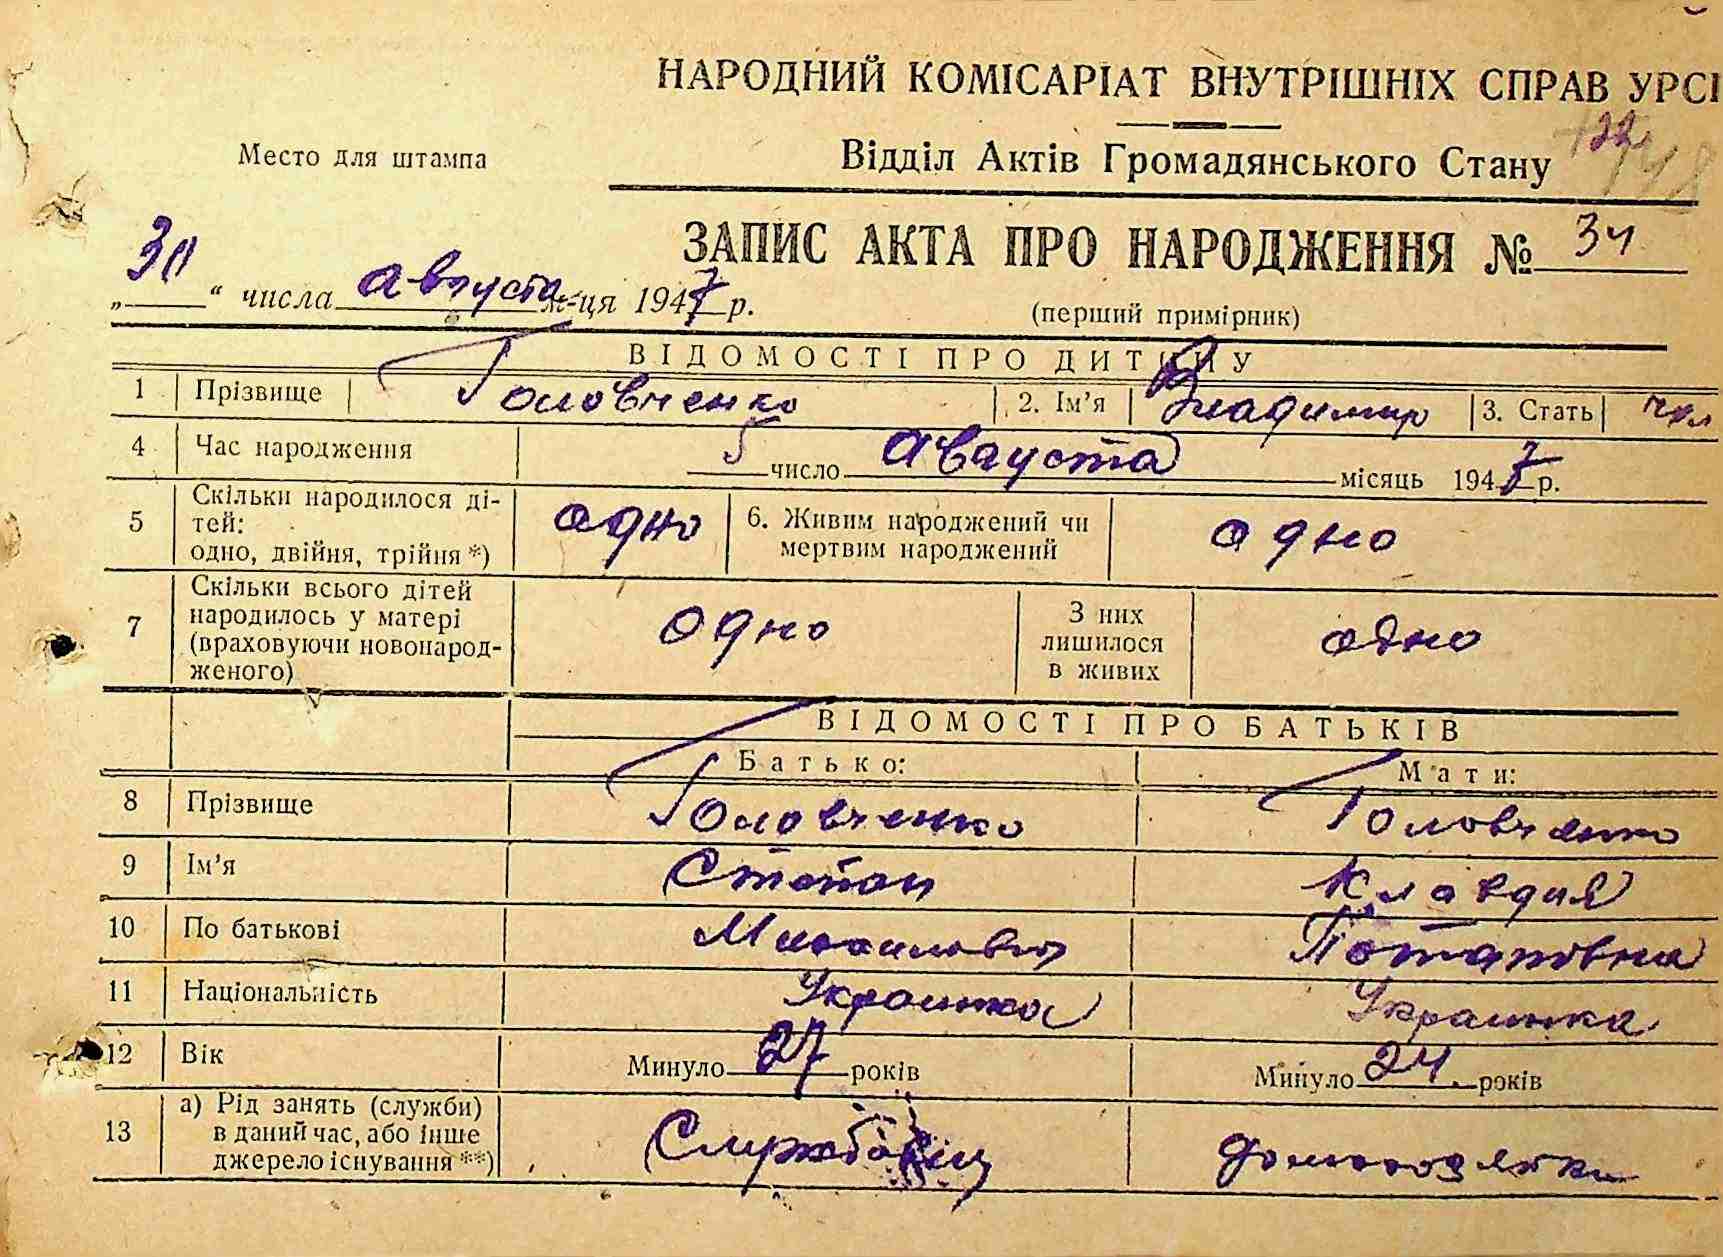 НАРОДНИЙ КОМІСАРІАТ ВНУТРІШНІХ СПРАВ УРСР
Место для штампа
Відділ Актів Громадянського Стану 22
ЗАПИС АКТА ПРО НАРОДЖЕННЯ № 34
„30“ числа Августа м-ця 1947 р.
(перший примірник)
ВІДОМОСТІ ПРО ДИТИНУ
1 Прізвище Головченко 2. Ім’я Владимир 3. Стать чол
4 Час народження 5 число Августа місяць 1947 р.
5 Скільки народилося ді-
тей:
одно, двійня, трійня *) одно 6. Живим народжений чи
мертвим народжений одно
7 Скільки всього дітей
народилось у матері
(враховуючи новонарод-
женого) одно З них
лишилося
в живих одно
ВІДОМОСТІ ПРО БАТЬКІВ
Батько: Мати:
8 Прізвище Головченко Головченко
9 Ім’я Степан Клавдия
10 По батькові Михайлович Потаповна
11 Національність Украинка Украинка
12 Вік Минуло 27 років Минуло 24 років
13 а) Рід занять (служби)
в даний час, або інше
джерело існування **) Службовець домохозяйка